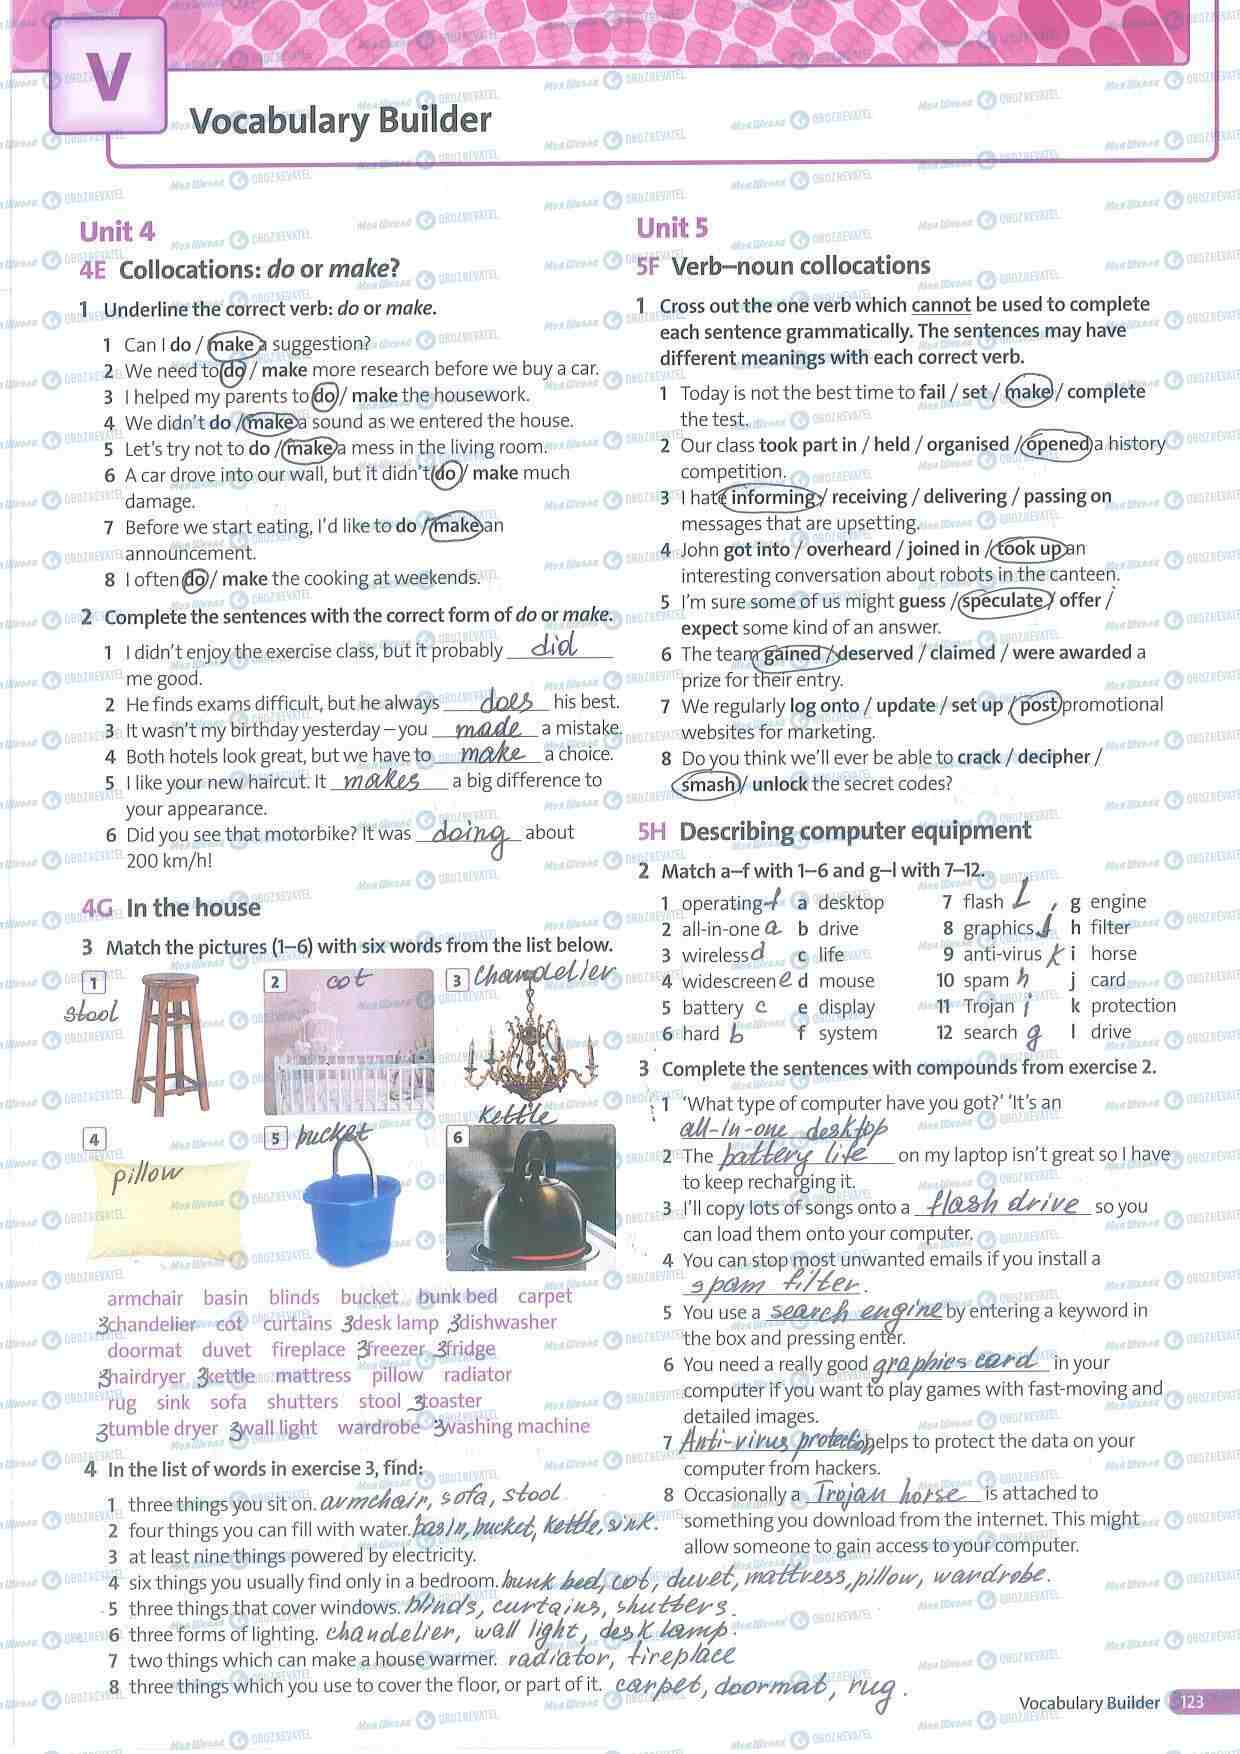 V
Vocabulary Builder
Unit 4
4E Collocations: do or make?
1 Underline the correct verb: do or make.
1 Can I do / make a suggestion?
2 We need to do / make more research before we buy a car.
3 I helped my parents to do / make the housework.
4 We didn't do / make a sound as we entered the house.
5 Let's try not to do / make a mess in the living room.
6 A car drove into our wall, but it didn't do / make much
damage.
7 Before we start eating, I'd like to do / make an
announcement.
8 I often do / make the cooking at weekends.
2 Complete the sentences with the correct form of do or make.
1 I didn't enjoy the exercise class, but it probably did
me good.
2 He finds exams difficult, but he always does his best.
3 It wasn't my birthday yesterday – you made a mistake.
4 Both hotels look great, but we have to make a choice.
5 I like your new haircut. It makes a big difference to
your appearance.
6 Did you see that motorbike? It was doing about
200 km/h!
4G In the house
3 Match the pictures (1–6) with six words from the list below.
1 stool
2 cot
3 chandelier
4 pillow
5 bucket
6 kettle
armchair basin blinds bucket bunk bed carpet
3chandelier cot curtains 3desk lamp 3dishwasher
doormat duvet fireplace 3freezer 3fridge
3hairdryer 3kettle mattress pillow radiator
rug sink sofa shutters stool 3toaster
3tumble dryer 3wall light wardrobe 3washing machine
4 In the list of words in exercise 3, find:
1 three things you sit on. armchair, sofa, stool
2 four things you can fill with water. basin, bucket, kettle, sink.
3 at least nine things powered by electricity.
4 six things you usually find only in a bedroom. bunk bed, cot, duvet, mattress, pillow, wardrobe.
5 three things that cover windows. blinds, curtains, shutters.
6 three forms of lighting. chandelier, wall light, desk lamp.
7 two things which can make a house warmer. radiator, fireplace
8 three things which you use to cover the floor, or part of it. carpet, doormat, rug.
Unit 5
5F Verb–noun collocations
1 Cross out the one verb which cannot be used to complete
each sentence grammatically. The sentences may have
different meanings with each correct verb.
1 Today is not the best time to fail / set / make / complete
the test.
2 Our class took part in / held / organised / opened a history
competition.
3 I hate informing / receiving / delivering / passing on
messages that are upsetting.
4 John got into / overheard / joined in / took up an
interesting conversation about robots in the canteen.
5 I'm sure some of us might guess / speculate / offer /
expect some kind of an answer.
6 The team gained / deserved / claimed / were awarded a
prize for their entry.
7 We regularly log onto / update / set up / post promotional
websites for marketing.
8 Do you think we'll ever be able to crack / decipher /
smash / unlock the secret codes?
5H Describing computer equipment
2 Match a–f with 1–6 and g–l with 7–12.
1 operating f a desktop 7 flash l g engine
2 all-in-one a b drive 8 graphics j h filter
3 wireless d c life 9 anti-virus k i horse
4 widescreen e d mouse 10 spam h j card
5 battery c e display 11 Trojan i k protection
6 hard b f system 12 search g l drive
3 Complete the sentences with compounds from exercise 2.
1 'What type of computer have you got?' 'It's an
all-in-one desktop
2 The battery life on my laptop isn't great so I have
to keep recharging it.
3 I'll copy lots of songs onto a flash drive so you
can load them onto your computer.
4 You can stop most unwanted emails if you install a
spam filter.
5 You use a search engine by entering a keyword in
the box and pressing enter.
6 You need a really good graphics card in your
computer if you want to play games with fast-moving and
detailed images.
7 Anti-virus protection helps to protect the data on your
computer from hackers.
8 Occasionally a Trojan horse is attached to
something you download from the internet. This might
allow someone to gain access to your computer.
Vocabulary Builder 123